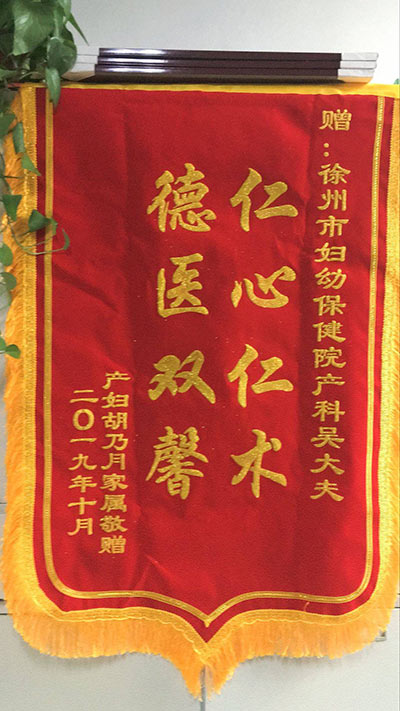 赠：徐州市妇幼保健院产科吴大夫
仁心仁术
德医双馨
产妇胡乃月家属敬赠
二〇一九年十月